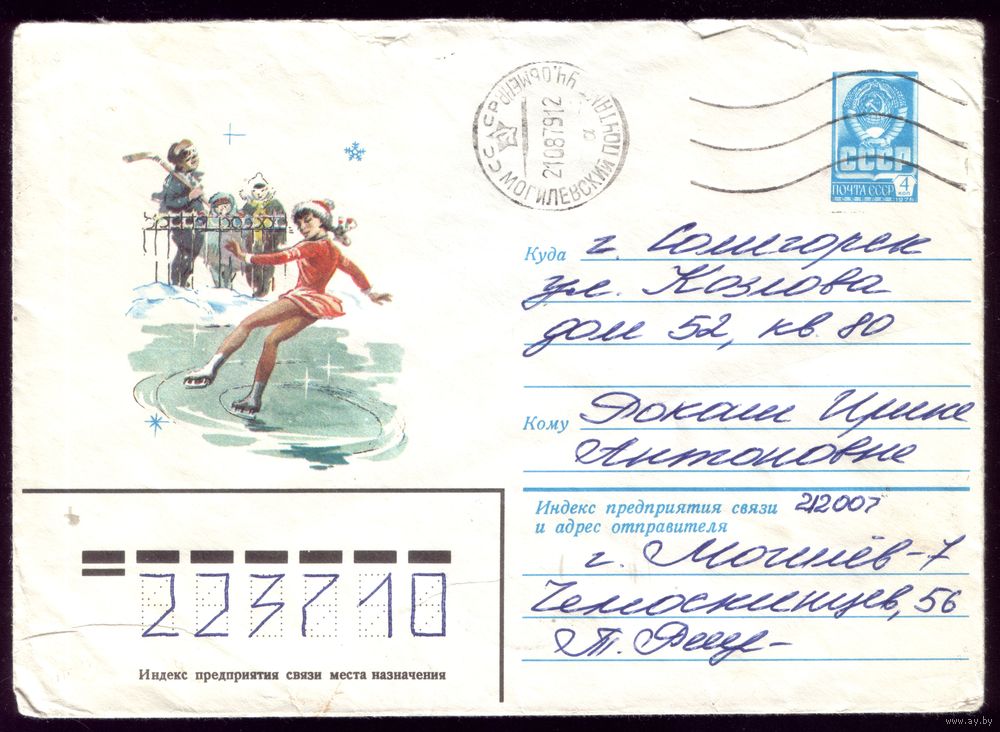 СССР МОГИЛЕВСКИЙ ПОЧТАМТ
21087912
СССР
ПОЧТА СССР
4
КОП
1978
Куда г. Солигорск
ул. Козлова
дом 52, кв. 80
Кому Рокаш Ирине
Антоновне
Индекс предприятия связи 212007
и адрес отправителя
г. Могилёв-7
Челюскинцев, 56
Т.
223710
Индекс предприятия связи места назначения
www.ay.by